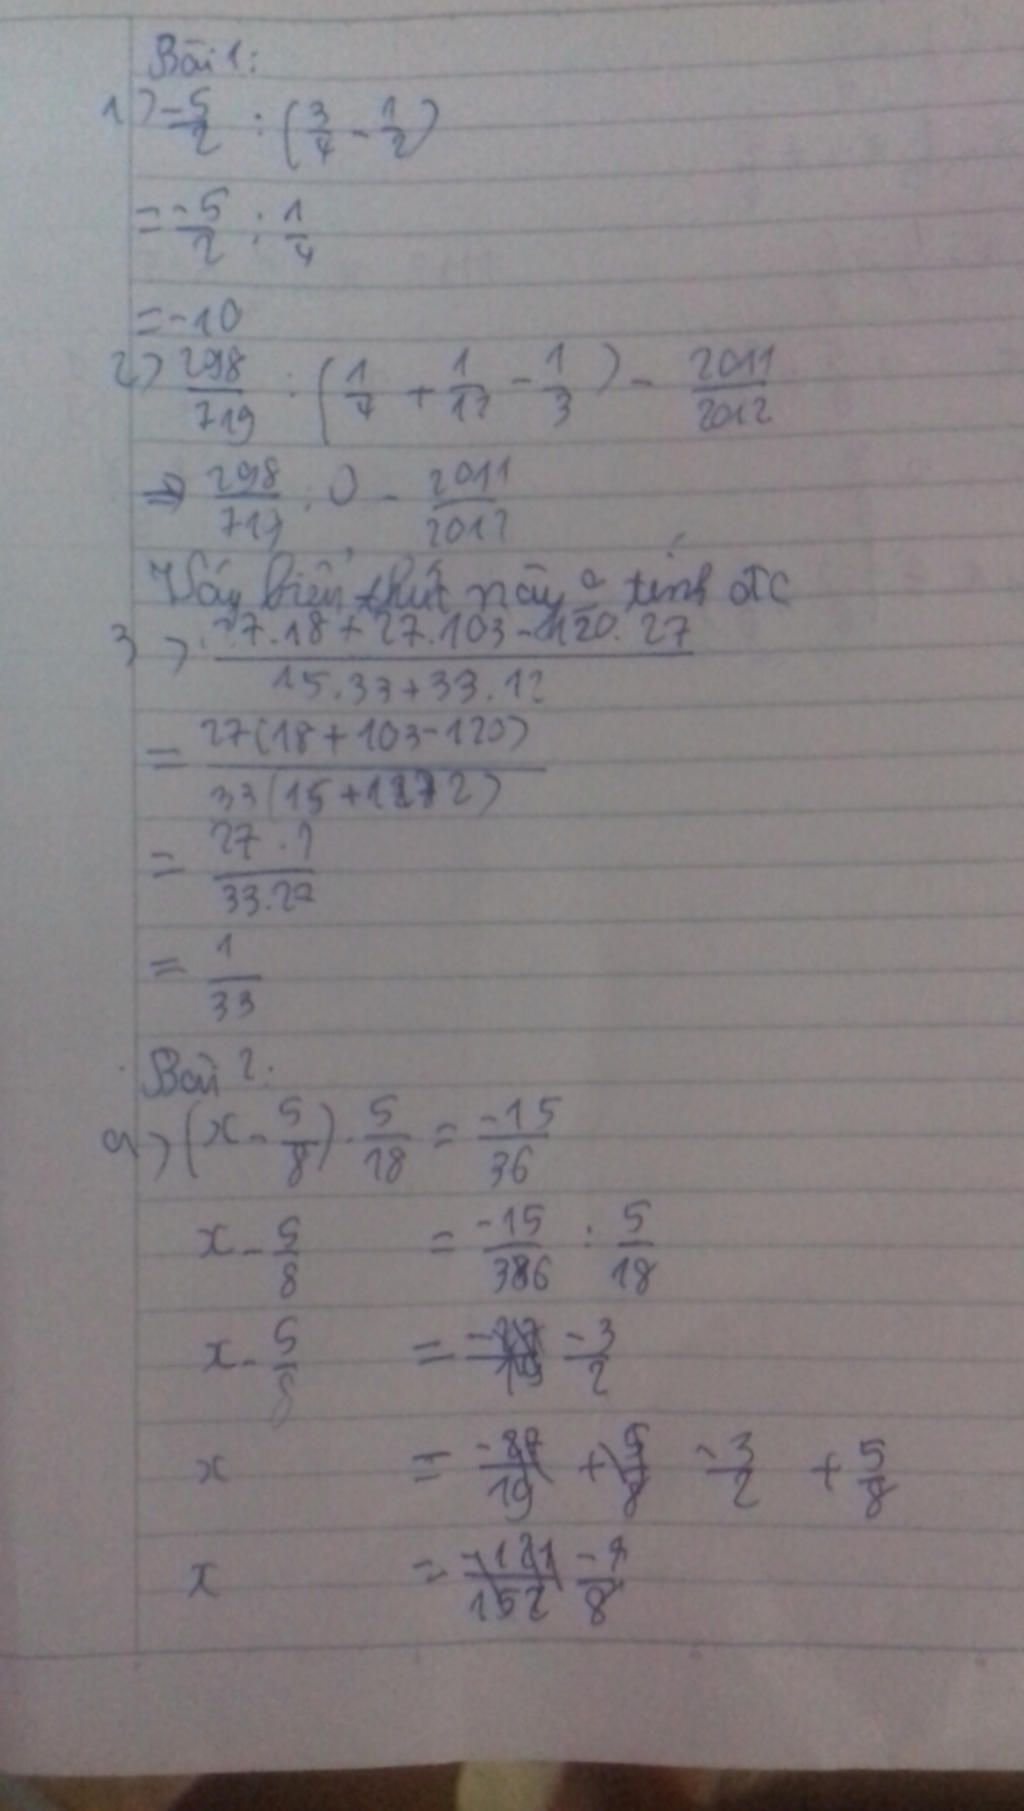 Bài 1:
1) -5/2 : (3/4 - 1/2)
= -5/2 : 1/4
= -10
2) 298/719 : (1/4 + 1/12 - 1/3) - 2011/2012
=> 298/719 : 0 - 2011/2012
Vậy biểu thức này o tính đc
3) 27.18 + 27.103 - 120.27 / 15.33 + 33.12
= 27(18 + 103 - 120) / 33(15 + 12)
= 27.1 / 33.27
= 1/33
Bài 2:
a) (x - 5/8) . 5/18 = -15/36
x - 5/8 = -15/36 : 5/18
x - 5/8 = -3/2
x = -3/2 + 5/8
x = /8